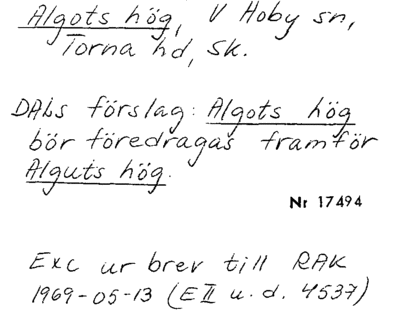 Algots hög, V Hoby sn,
Torna hd, Sk.
DALs förslag: Algots hög
bör föredragas framför
Alguts hög.
Nr 17494
Exc ur brev till RAK
1969-05-13 (E II u. d. 4537)